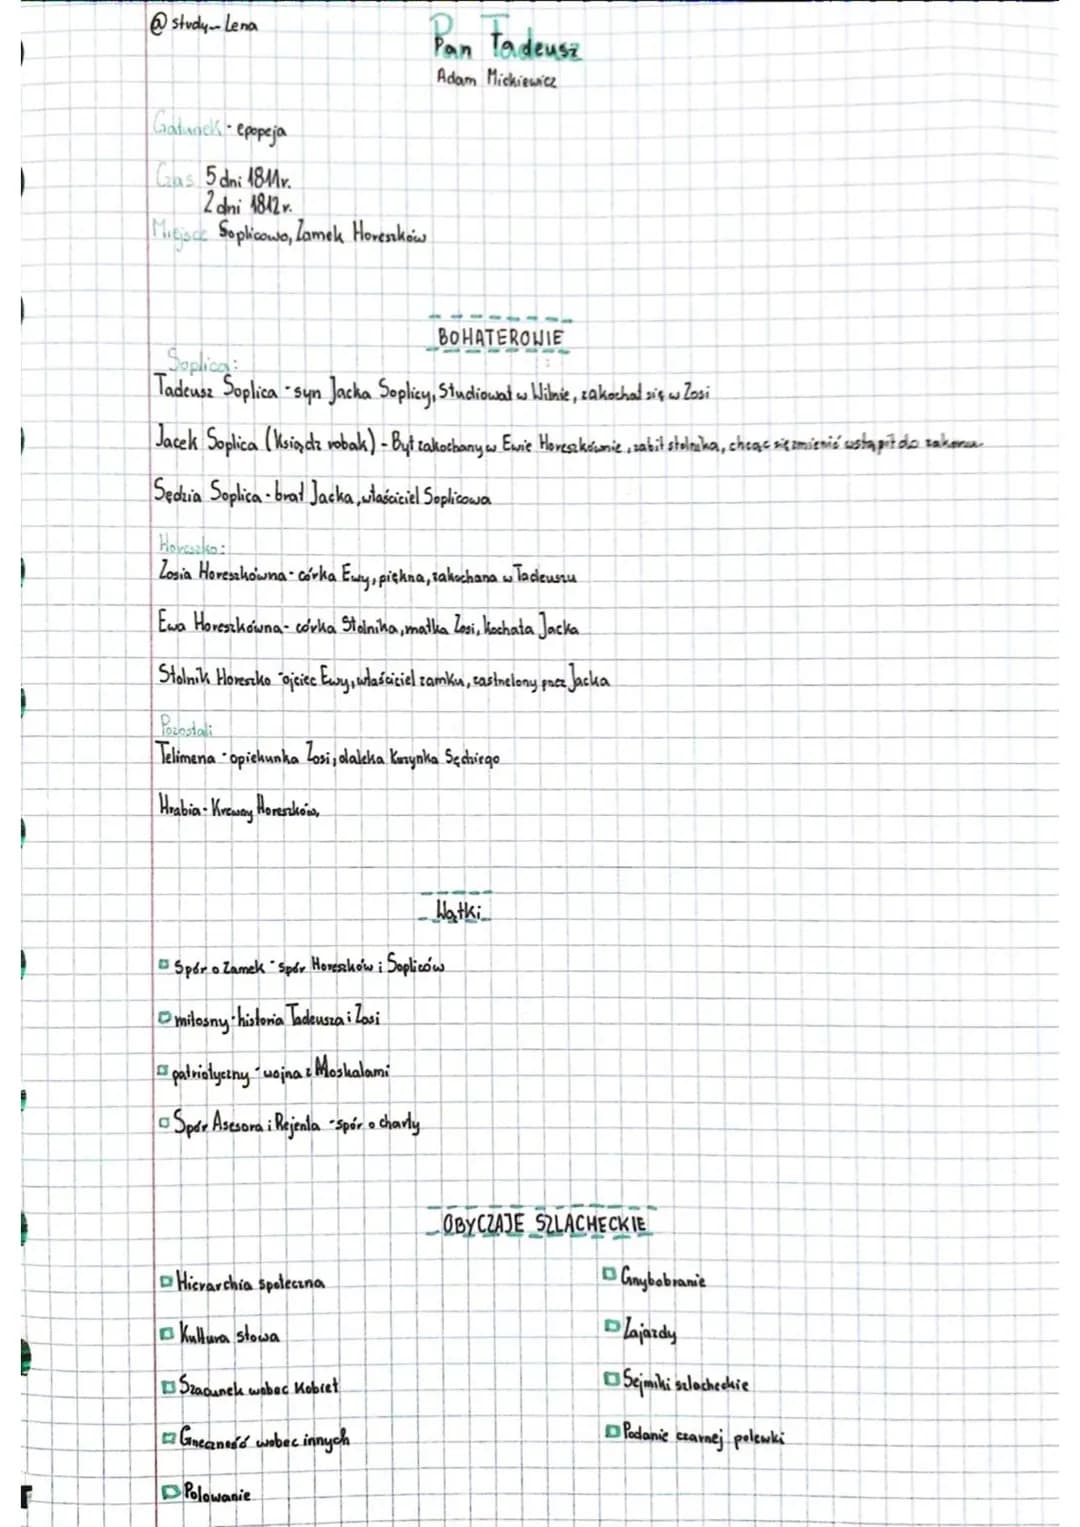 @ study_Lena
Pan Tadeusz
Adam Mickiewicz
Gatunek - epopeja
Czas 5 dni 1811r.
2 dni 1812r.
Miejsce Soplicowo, Zamek Horeszków
BOHATEROWIE
Soplica:
Tadeusz Soplica - syn Jacka Soplicy, Studiował w Wilnie, zakochał się w Zosi
Jacek Soplica (Ksiądz robak) - Był zakochany w Ewie Horeszkównie, zabił stolnika, chcąc się zmienić wstąpił do zakonu
Sędzia Soplica - brat Jacka, właściciel Soplicowa
Horeszko:
Zosia Horeszkówna - córka Ewy, piękna, zakochana w Tadeuszu
Ewa Horeszkówna - córka Stolnika, matka Zosi, kochała Jacka
Stolnik Horeszko - ojciec Ewy, właściciel zamku, zastrzelony przez Jacka
Pozostali
Telimena - opiekunka Zosi, daleka Kuzynka Sędziego
Hrabia - Krewny Horeszków,
Wątki
Spór o Zamek - spór Horeszków i Sopliców
miłosny - historia Tadeusza i Zosi
patriotyczny - wojna z Moskalami
Spór Asesora i Rejenta - spór o charty
OBYCZAJE SZLACHECKIE
Hierarchia społeczna
Kultura słowa
Szacunek wobec Kobiet
Grzeczność wobec innych
Polowanie
Grzybobranie
Zajazdy
Sejmiki szlacheckie
Podanie czarnej polewki